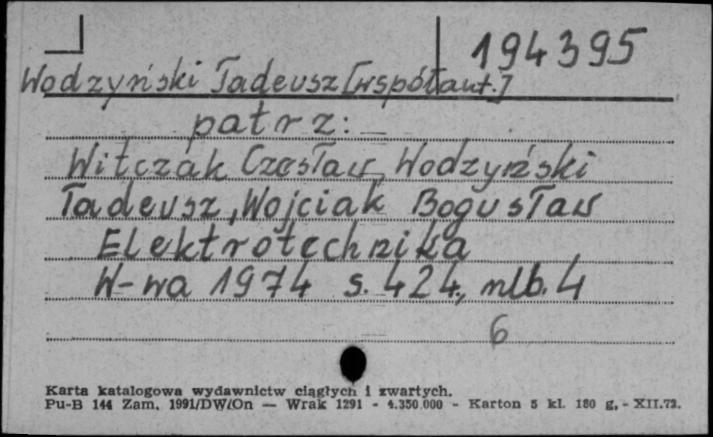 194395
Wodzyński Tadeusz [współaut.]
patrz:
Witczak Czesław, Wodzyński
Tadeusz, Wojciak Bogusław
Elektrotechnika
W-wa 1974 s. 424, nlb. 4
6
Karta katalogowa wydawnictw ciągłych i zwartych.
Pu-B 144 Zam. 1991/DW/On — Wrak 1291 - 4.350.000 - Karton 5 kl. 180 g. - XII.72.